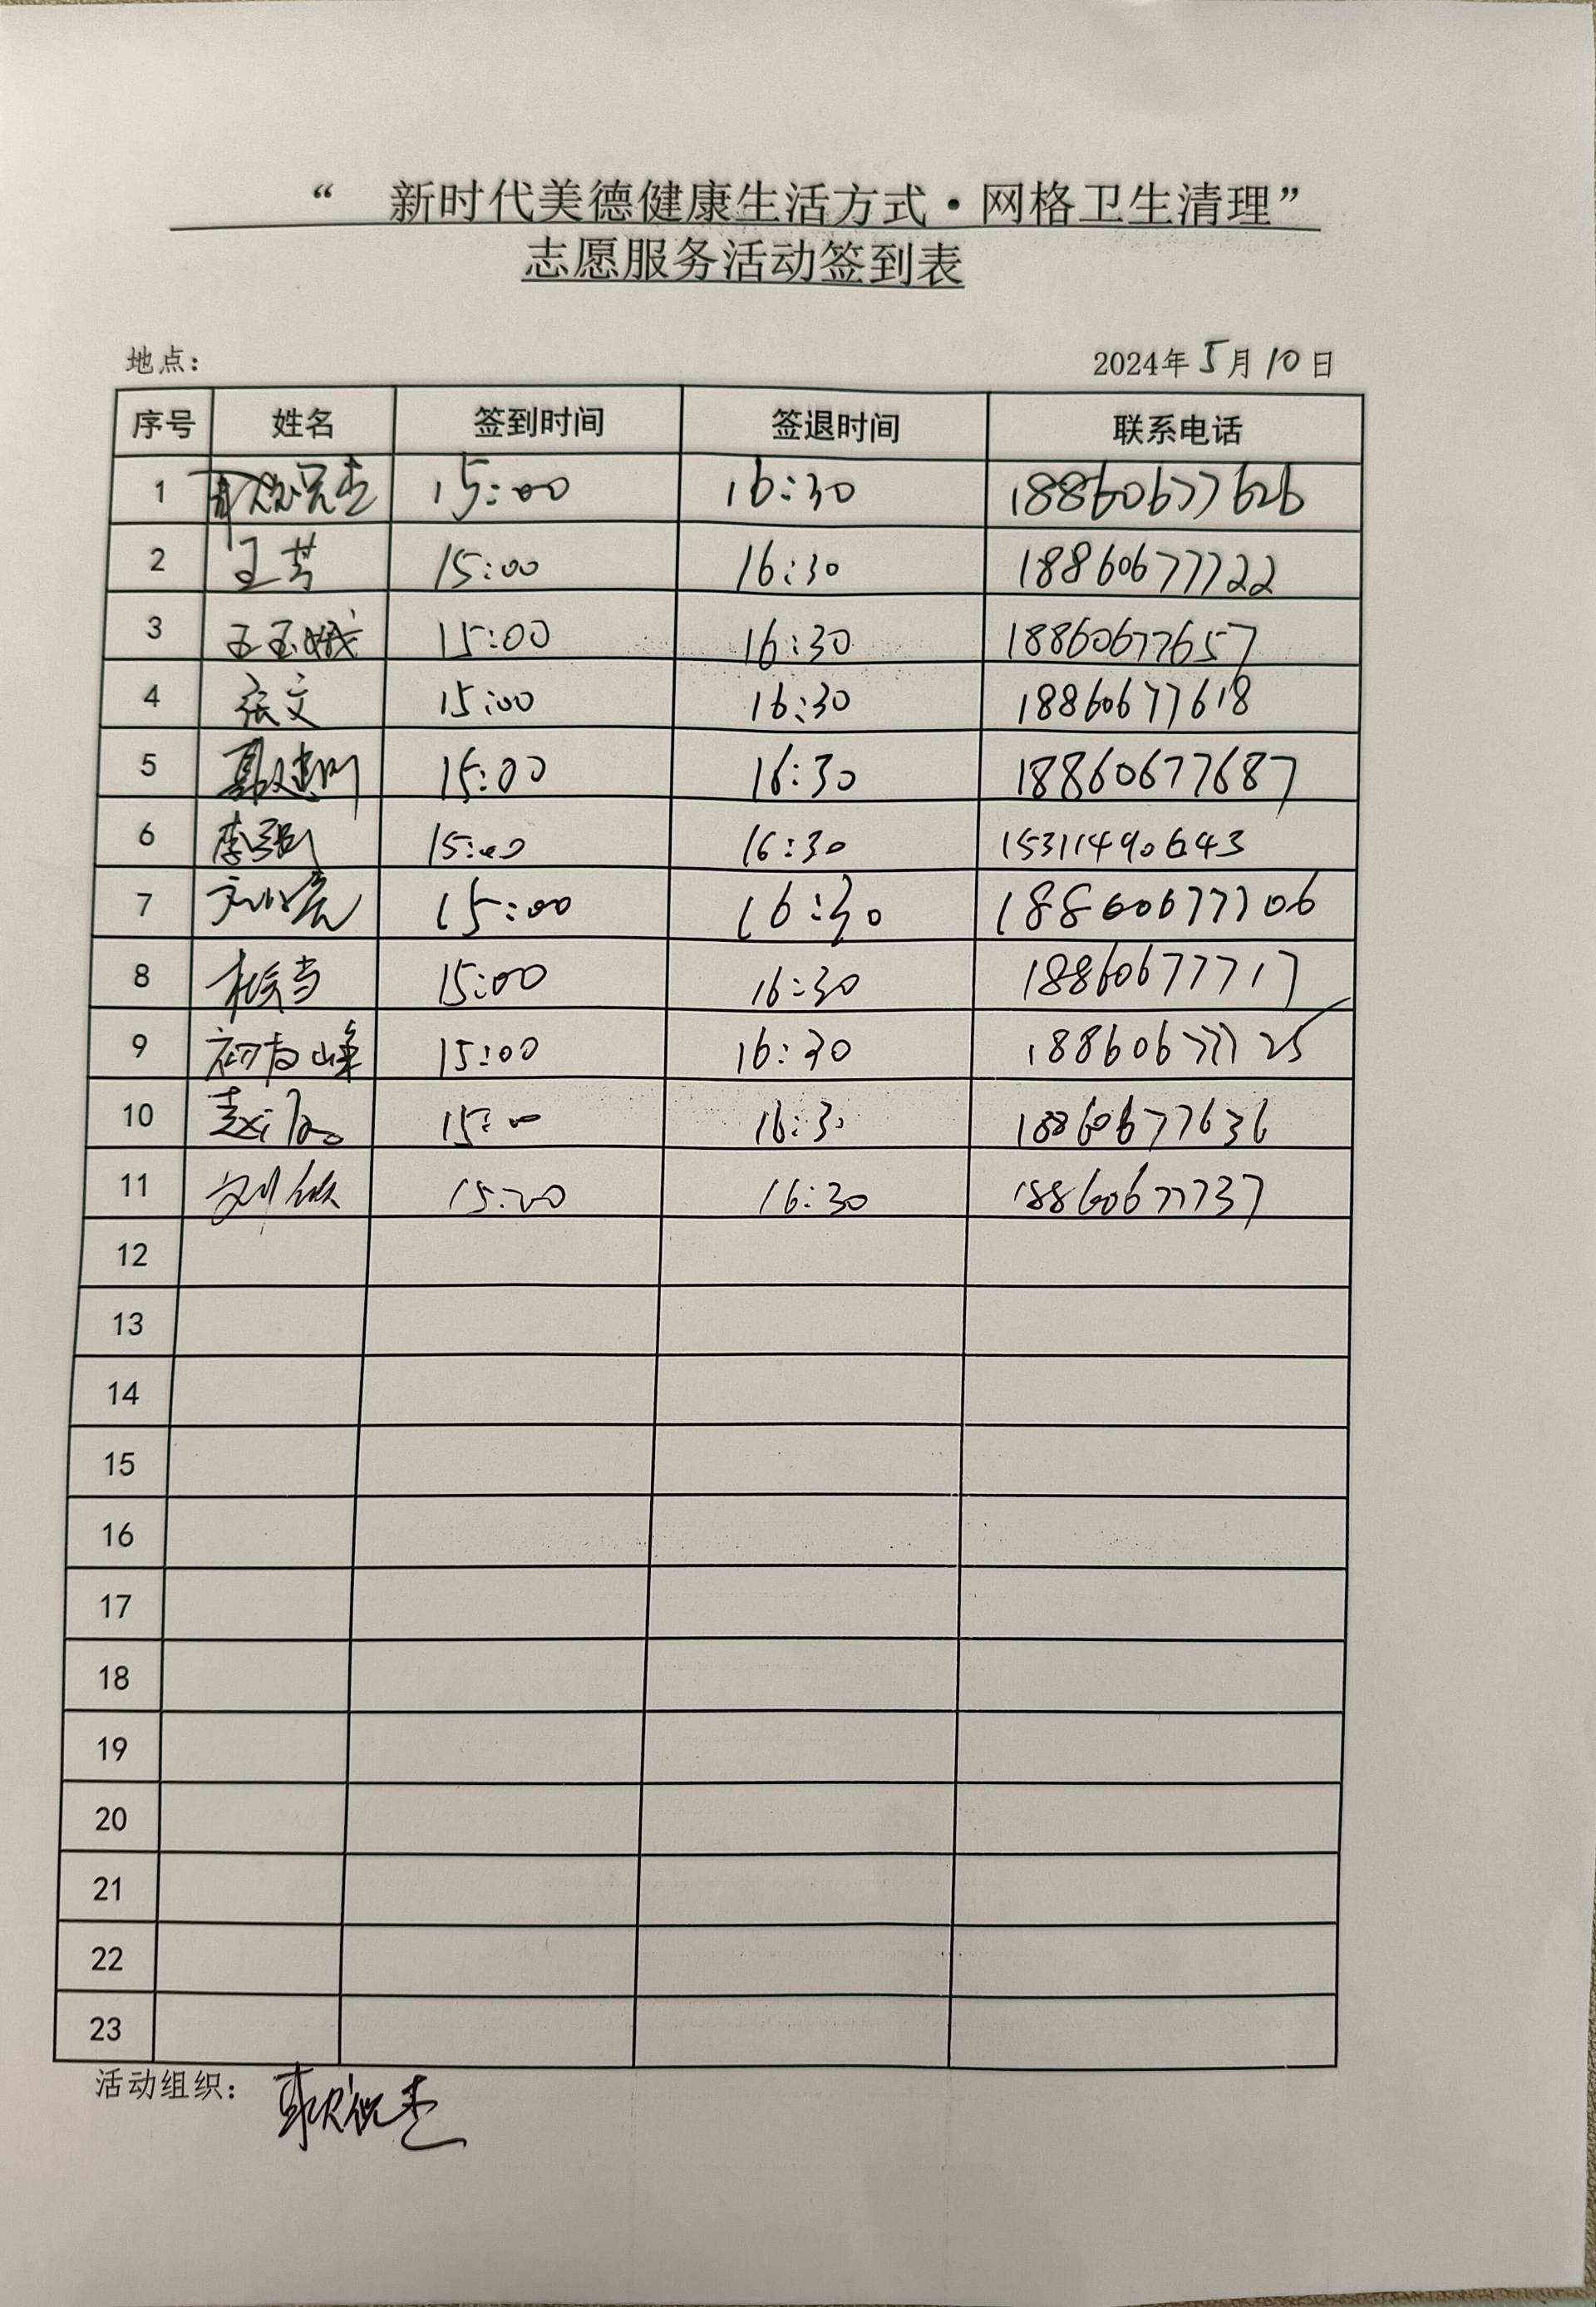 “ 新时代美德健康生活方式·网格卫生清理”
志愿服务活动签到表
地点： 2024年5月10日
序号 姓名 签到时间 签退时间 联系电话
1 15:00 16:30 18860677626
2 王芳 15:00 16:30 18860677722
3 王玉娥 15:00 16:30 18860677657
4 张文 15:00 16:30 18860677618
5 15:00 16:30 18860677687
6 李强 15:00 16:30 15311490643
7 15:00 16:30 18860677706
8 15:00 16:30 18860677717
9 15:00 16:30 18860677725
10 15:00 16:30 18860677636
11 刘欣 16:30 18860677737
12
13
14
15
16
17
18
19
20
21
22
23
活动组织：